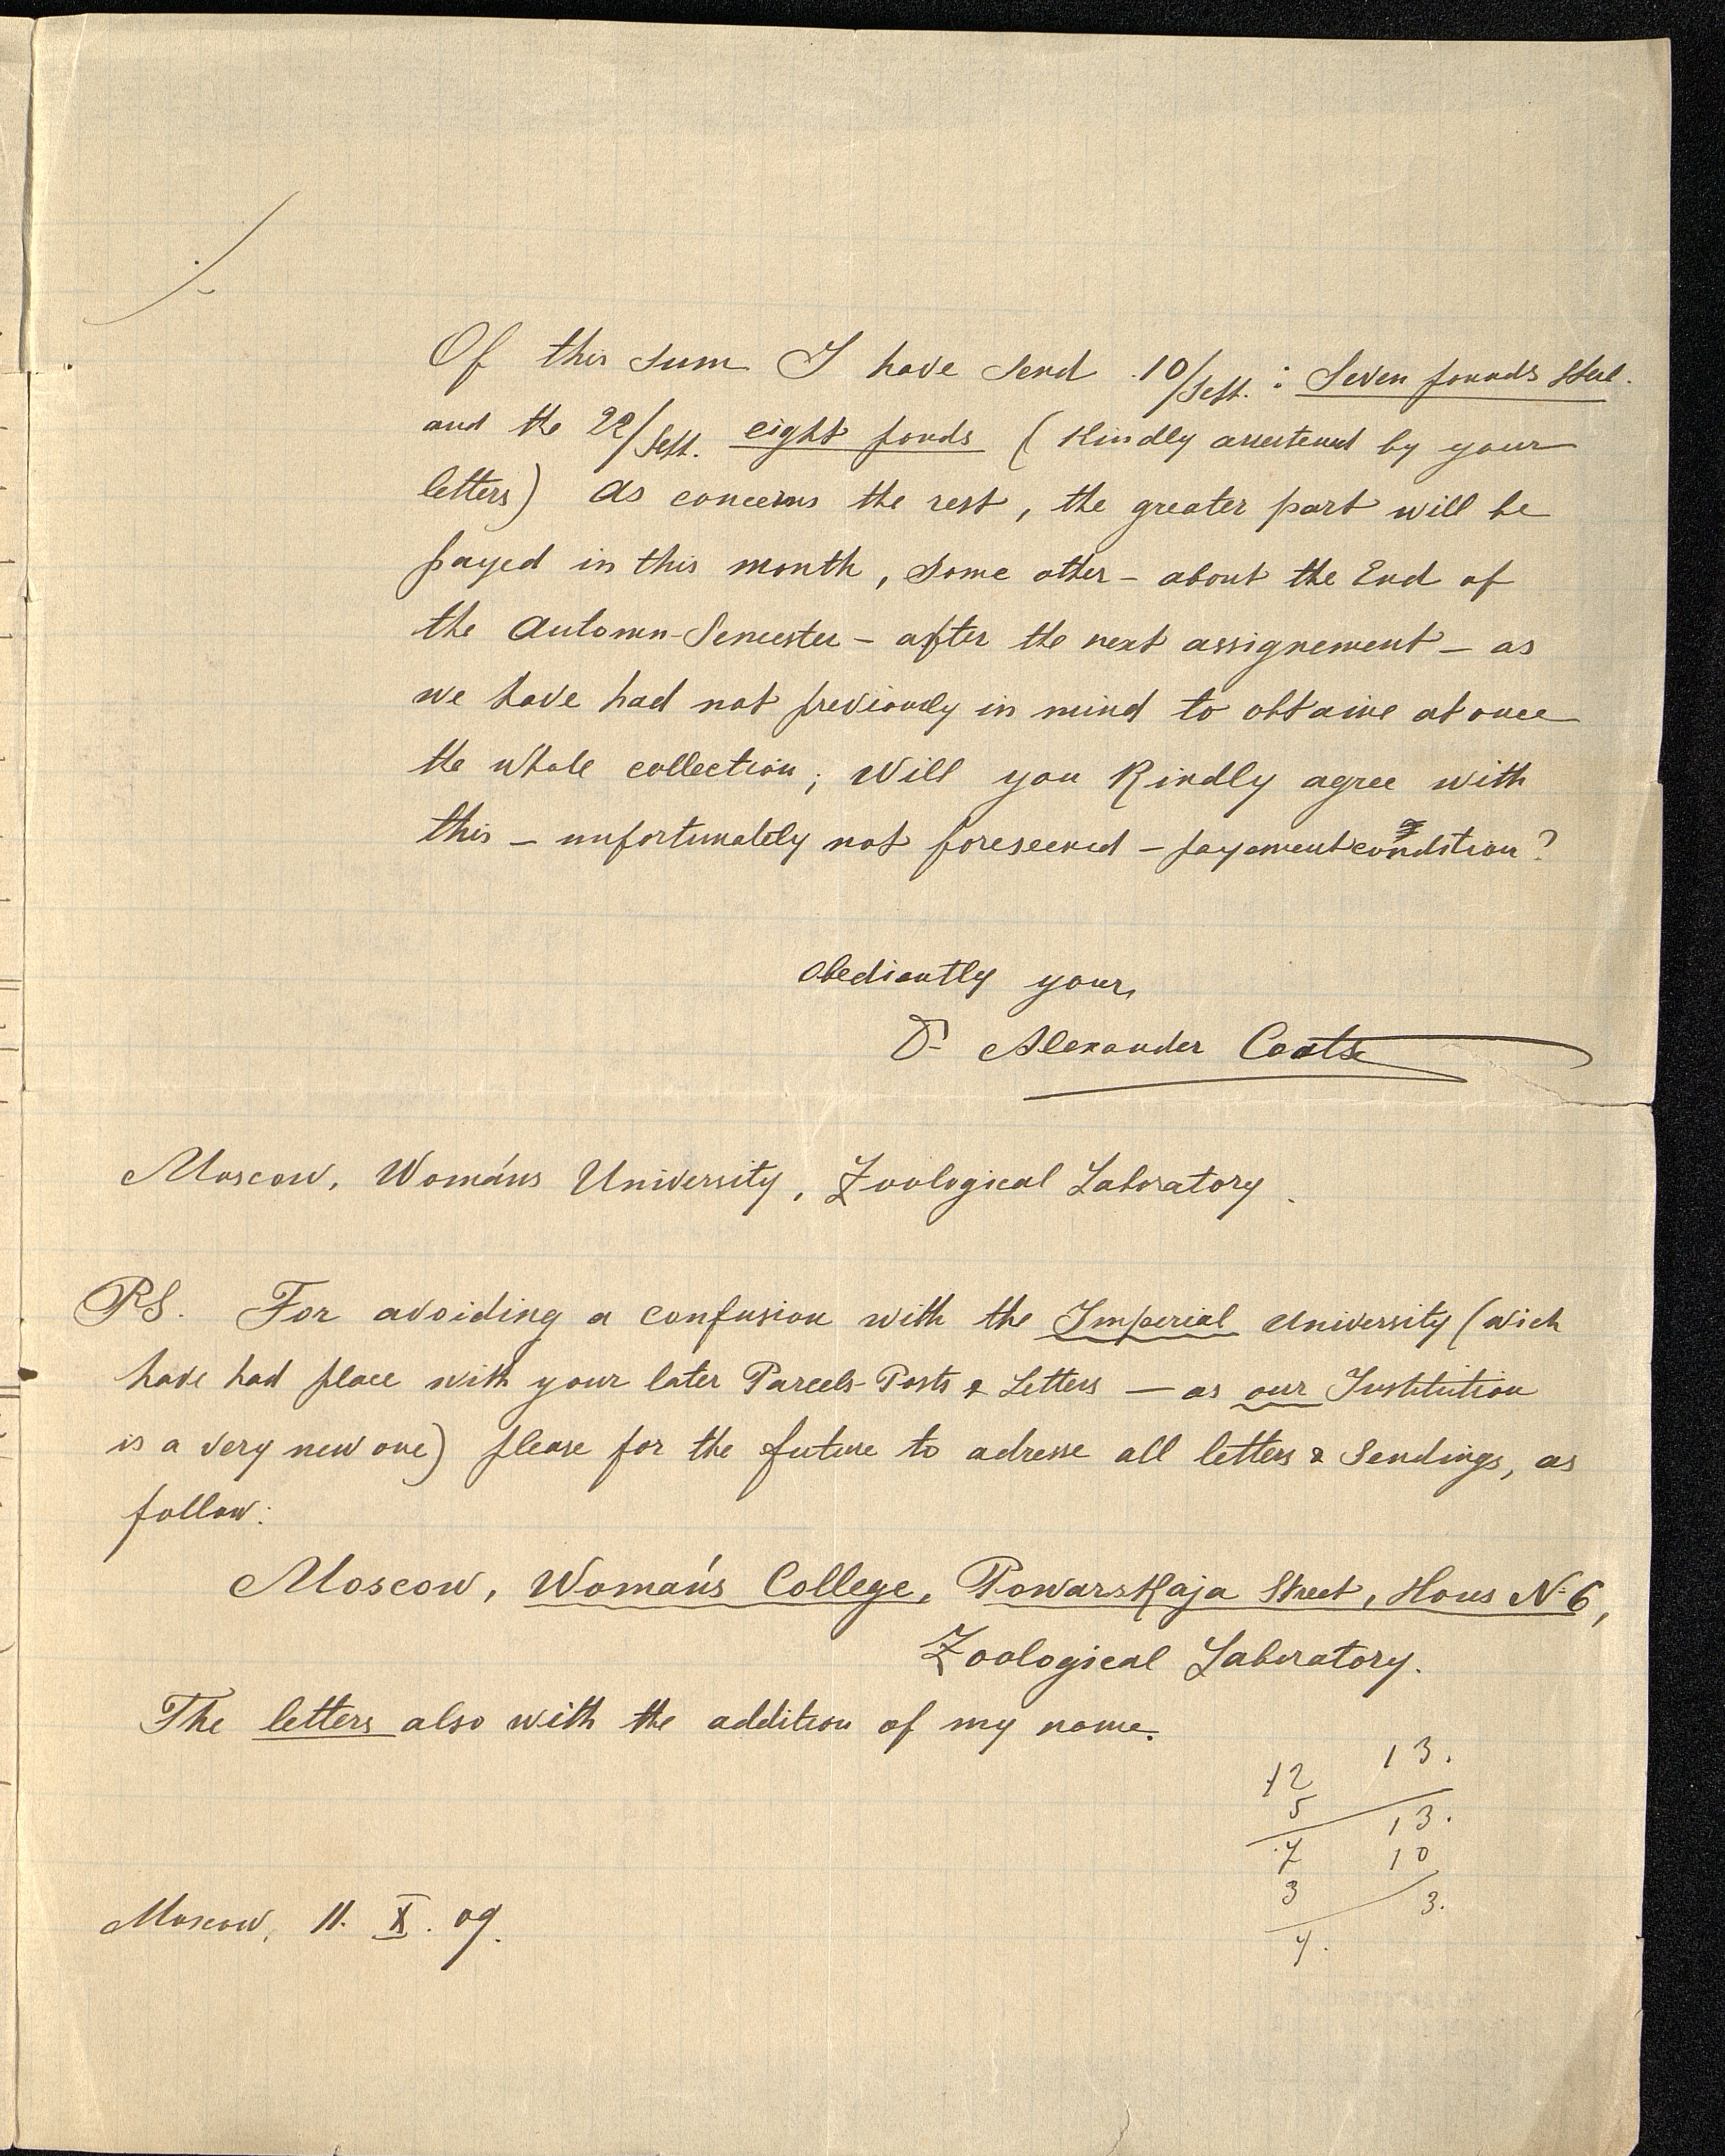 Of this sum I have send 10/Sept. : Seven pounds Sterl.
and the 22/Sept. eight ponds (Kindly by your
letters) As concerns the rest, the greater part will be
payed in this month, some other – about the End of
the Automn-Semester – after the next assignement – as
we have had not previously in mind to obtaine at once
the whole collection; Will you Kindly agree with
this – unfortunately not foreseened – payement condition?
Obediantly yours
Dr Alexander Coats
Moscow, Woman's University, Zoological Laboratory.
PS. For avoiding a confusion with the Imperial University (wich
have had place with your later Parcels-Posts & Letters – as our Institution
is a very new one) please for the future to adresse all letters & Sendings, as
follow:
Moscow, Woman's College, Powarskaja Street, Hous N 6,
Zoological Laboratory.
The letters also with the addition of my name.
12 13.
5 13.
7 10
3 3.
4.
Moscow, 11. X. 09.